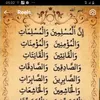 Reels
إِنَّ الْمُسْلِمِينَ وَالْمُسْلِمَاتِ
وَالْمُؤْمِنِينَ وَالْمُؤْمِنَاتِ
وَالْقَانِتِينَ وَالْقَانِتَاتِ
وَالصَّادِقِينَ وَالصَّادِقَاتِ
وَالصَّابِرِينَ وَالصَّابِرَاتِ
وَالْخَاشِعِينَ وَالْخَاشِعَاتِ